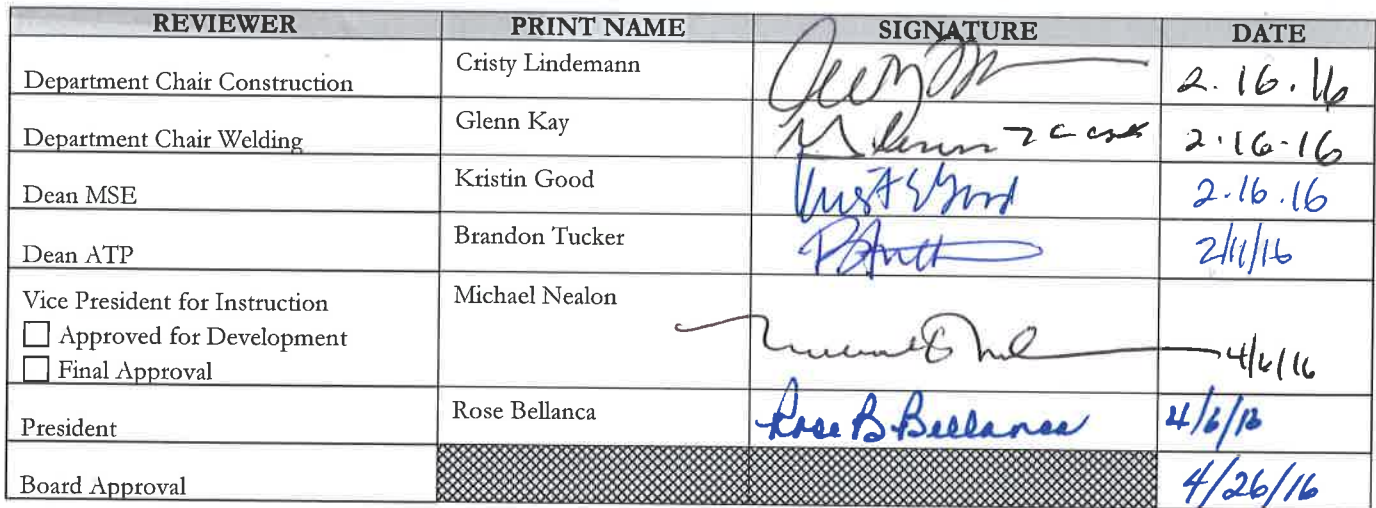 REVIEWER PRINT NAME SIGNATURE DATE
Department Chair Construction Cristy Lindemann 2.16.16
Department Chair Welding Glenn Kay 2.16.16
Dean MSE Kristin Good 2.16.16
Dean ATP Brandon Tucker 2/11/16
Vice President for Instruction Michael Nealon
Approved for Development
Final Approval 4/6/16
President Rose Bellanca Rose B Bellanca 4/6/16
Board Approval 4/26/16